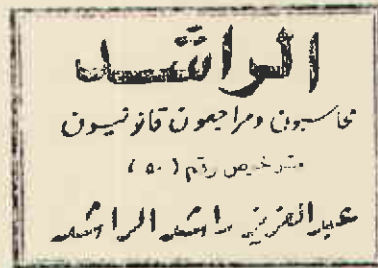 الراشد
محاسبون ومراجعون قانونيون
ترخيص رقم (٥٠)
عبدالعزيز راشد الراشد